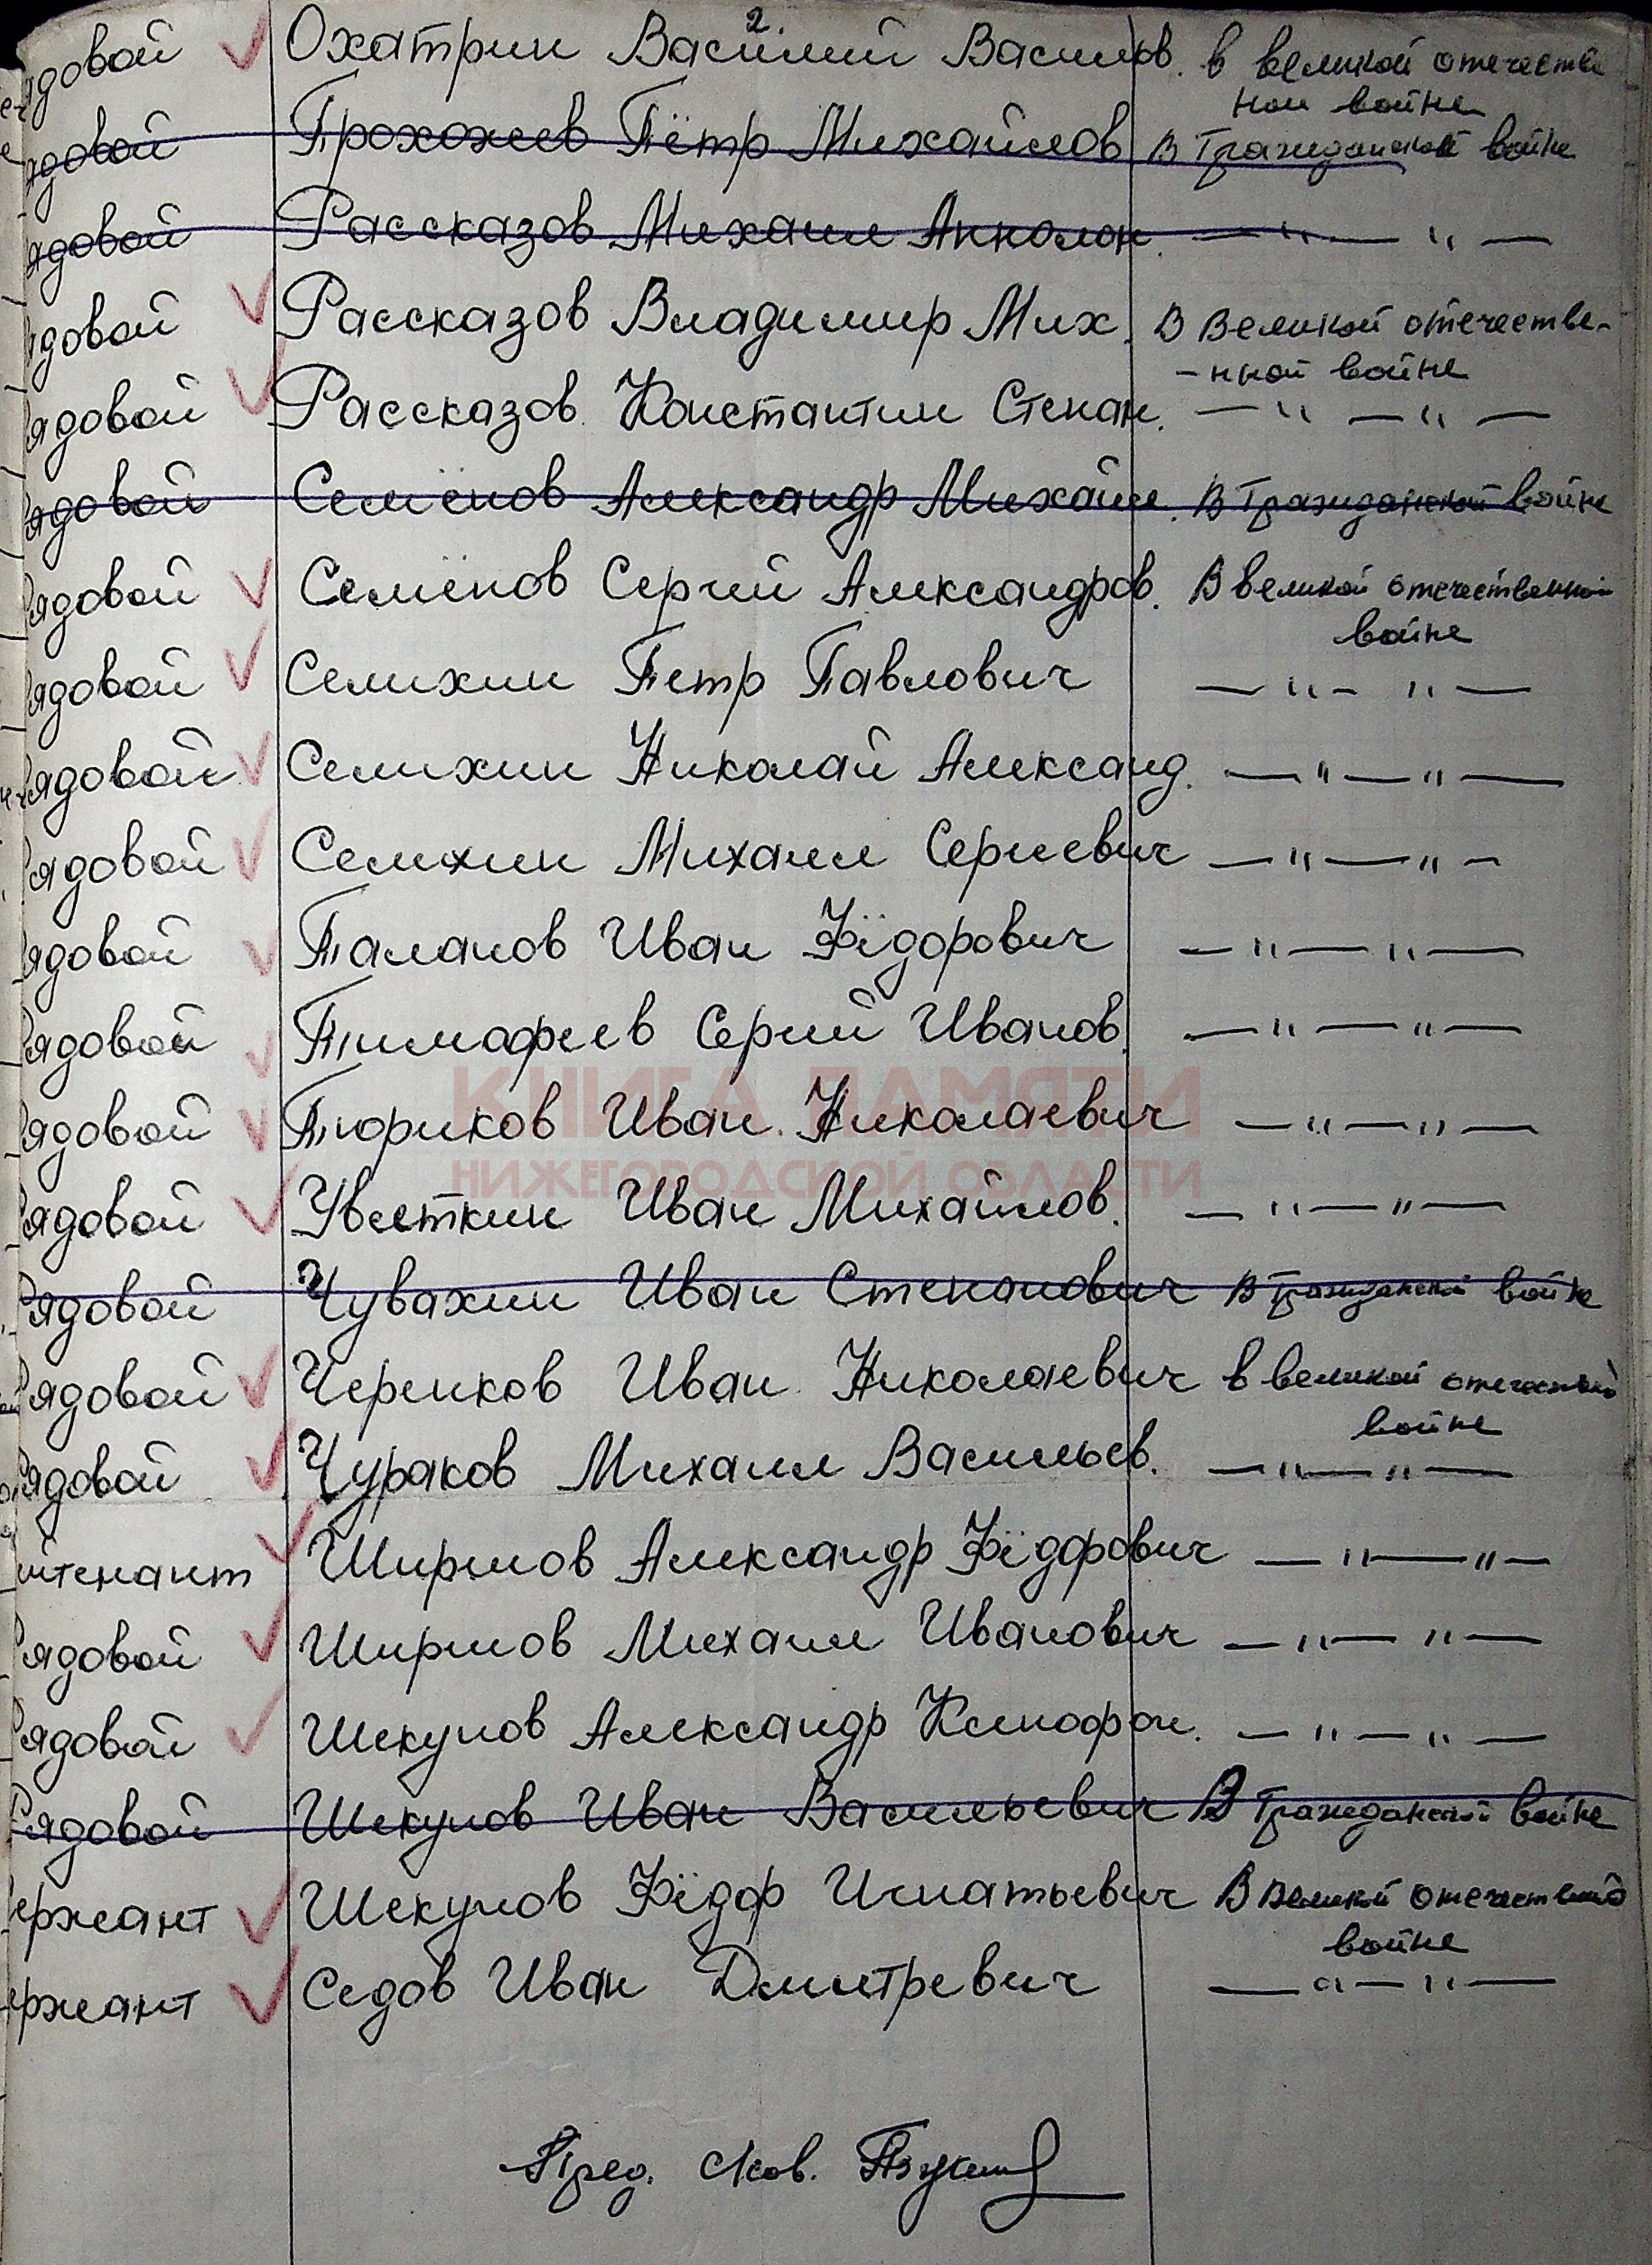 2.
ядовой Охатрин Василий Васильев. в великой отечестве
ной войне
ядовой Прохожев Пётр Михайлов В Гражданской войне
ядовой Рассказов Михаил Апполон. — " — " —
ядовой Рассказов Владимир Мих. В Великой отечестве-
-нной войне
ядовой Рассказов Константин Степан. — " — " —
ядовой Семёнов Александр Михайл. В Гражданской войне
Рядовой Семёнов Сергий Александров. В великой отечественной
войне
Рядовой Селихин Петр Павлович — " — " —
Рядовой Селихин Николай Александ. — " — " —
Рядовой Селихин Михаил Сергиевич — " — " —
Рядовой Таланов Иван Фёдорович — " — " —
Рядовой Тимафеев Сергий Иванов. — " — " —
КНИГА ПАМЯТИ
Рядовой Тюриков Иван Николаевич — " — " —
НИЖЕГОРОДСКОЙ ОБЛАСТИ
Рядовой Цветкин Иван Михайлов. — " — " —
Рядовой Чувахин Иван Степанович В Гражданской войне
Рядовой Черенков Иван Николаевич в великой отечествено
войне
Рядовой Чураков Михаил Васильев. — " — " —
йтенант Ширшов Александр Фёдорович — " — " —
Рядовой Ширшов Михаил Иванович — " — " —
Рядовой Шекунов Александр Ксинофон. — " — " —
Рядовой Шекунов Иван Васильевич В Гражданской войне
ержант Шекунов Фёдор Игнатьевич В Великой отечествено
войне
ержант Седов Иван Дмитревич — " — " —
Пред. с/сов.